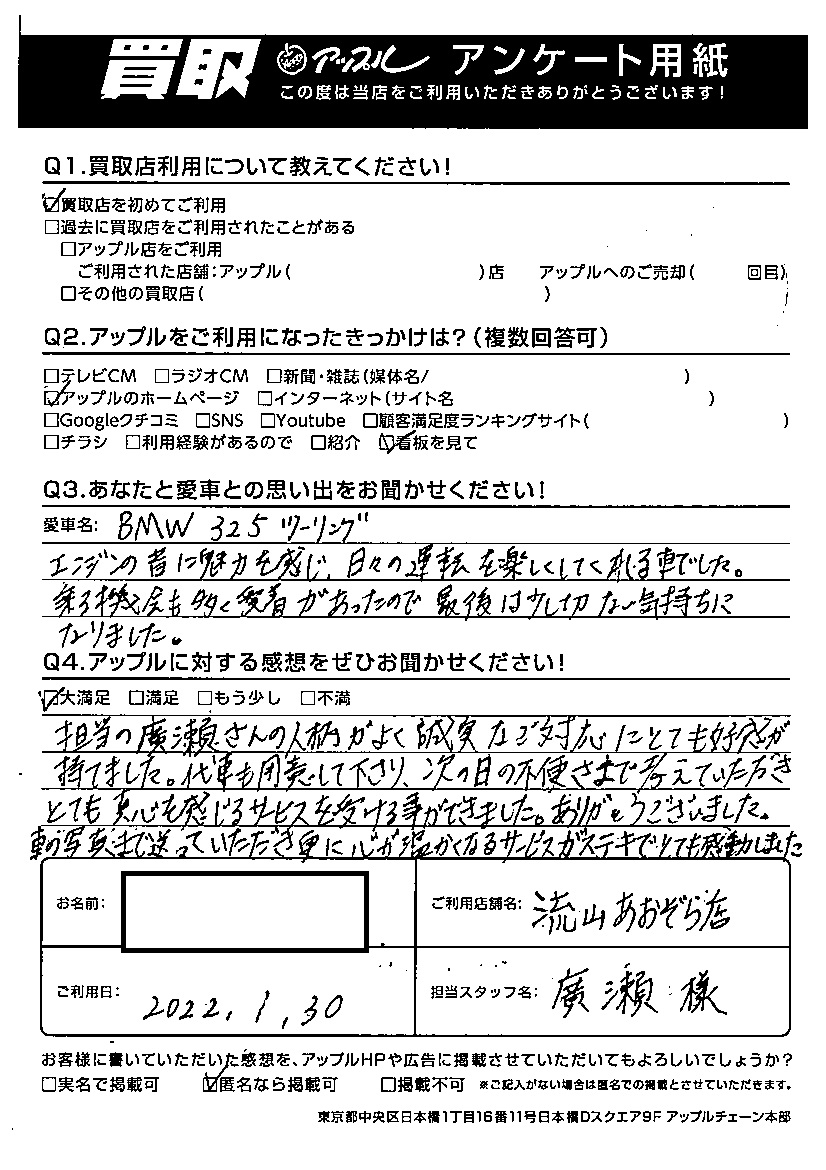 買取 アップル アンケート用紙
この度は当店をご利用いただきありがとうございます!
Q1.買取店利用について教えてください!
☑買取店を初めてご利用
□過去に買取店をご利用されたことがある
□アップル店をご利用
ご利用された店舗:アップル( )店 アップルへのご売却( 回目)
□その他の買取店( )
Q2.アップルをご利用になったきっかけは?(複数回答可)
□テレビCM □ラジオCM □新聞・雑誌(媒体名/ )
☑アップルのホームページ □インターネット(サイト名 )
□Googleクチコミ □SNS □Youtube □顧客満足度ランキングサイト( )
□チラシ □利用経験があるので □紹介 ☑看板を見て
Q3.あなたと愛車との思い出をお聞かせください!
愛車名: BMW 325 ツーリング
エンジンの音に魅力を感じ、日々の運転を楽しくしてくれる車でした。
乗る機会も多く愛着があったので最後は少し切ない気持ちに
なりました。
Q4.アップルに対する感想をぜひお聞かせください!
☑大満足 □満足 □もう少し □不満
担当の廣瀬さんの人柄がよく誠実なご対応にとても好感が
持てました。代車も用意して下さり、次の日の不便さまで考えていただき
とても真心を感じるサービスを受ける事ができました。ありがとうございました。
車の写真まで送っていただき更に心が温かくなるサービスがステキでとても感動しました
お名前: ご利用店舗名: 流山あおぞら店
ご利用日: 2022.1.30 担当スタッフ名: 廣瀬 様
お客様に書いていただいた感想を、アップルHPや広告に掲載させていただいてもよろしいでしょうか?
□実名で掲載可 ☑匿名なら掲載可 □掲載不可 ※ご記入がない場合は匿名での掲載とさせていただきます。
東京都中央区日本橋1丁目16番11号日本橋Dスクエア9F アップルチェーン本部